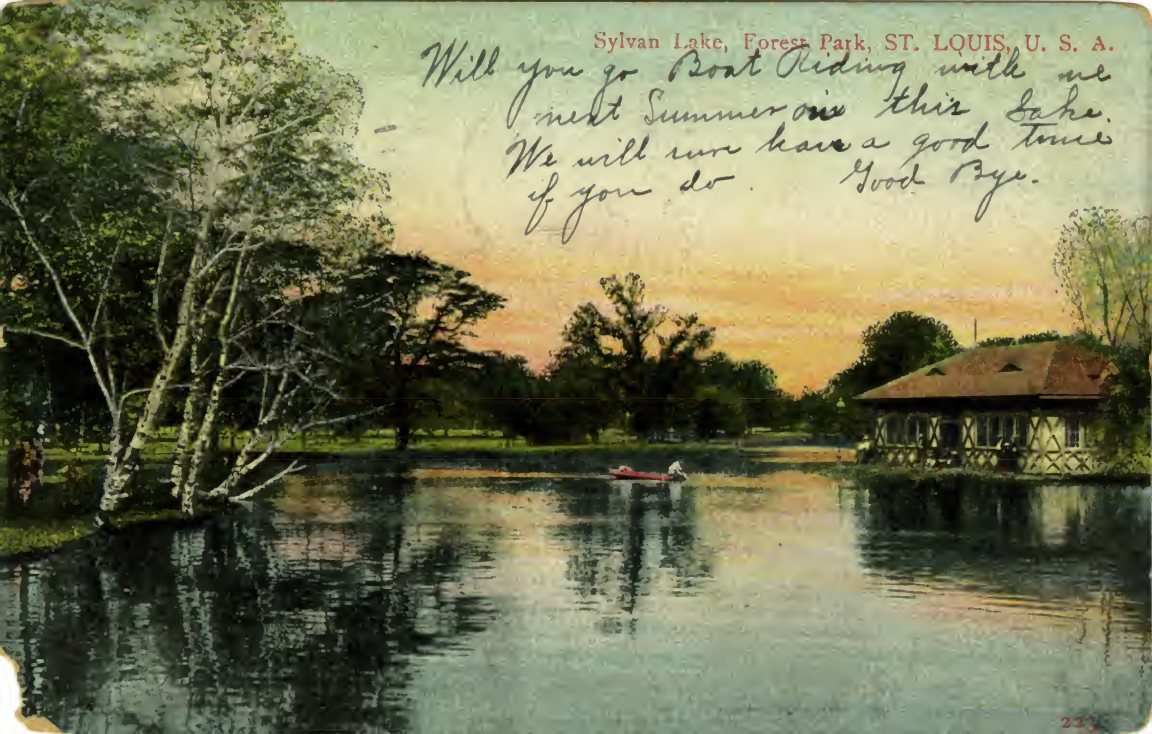 Sylvan Lake, Forest Park, ST. LOUIS, U. S. A.
Will you go Boat Riding with me
next Summer on this Lake.
We will sure have a good time
if you do. Good Bye.